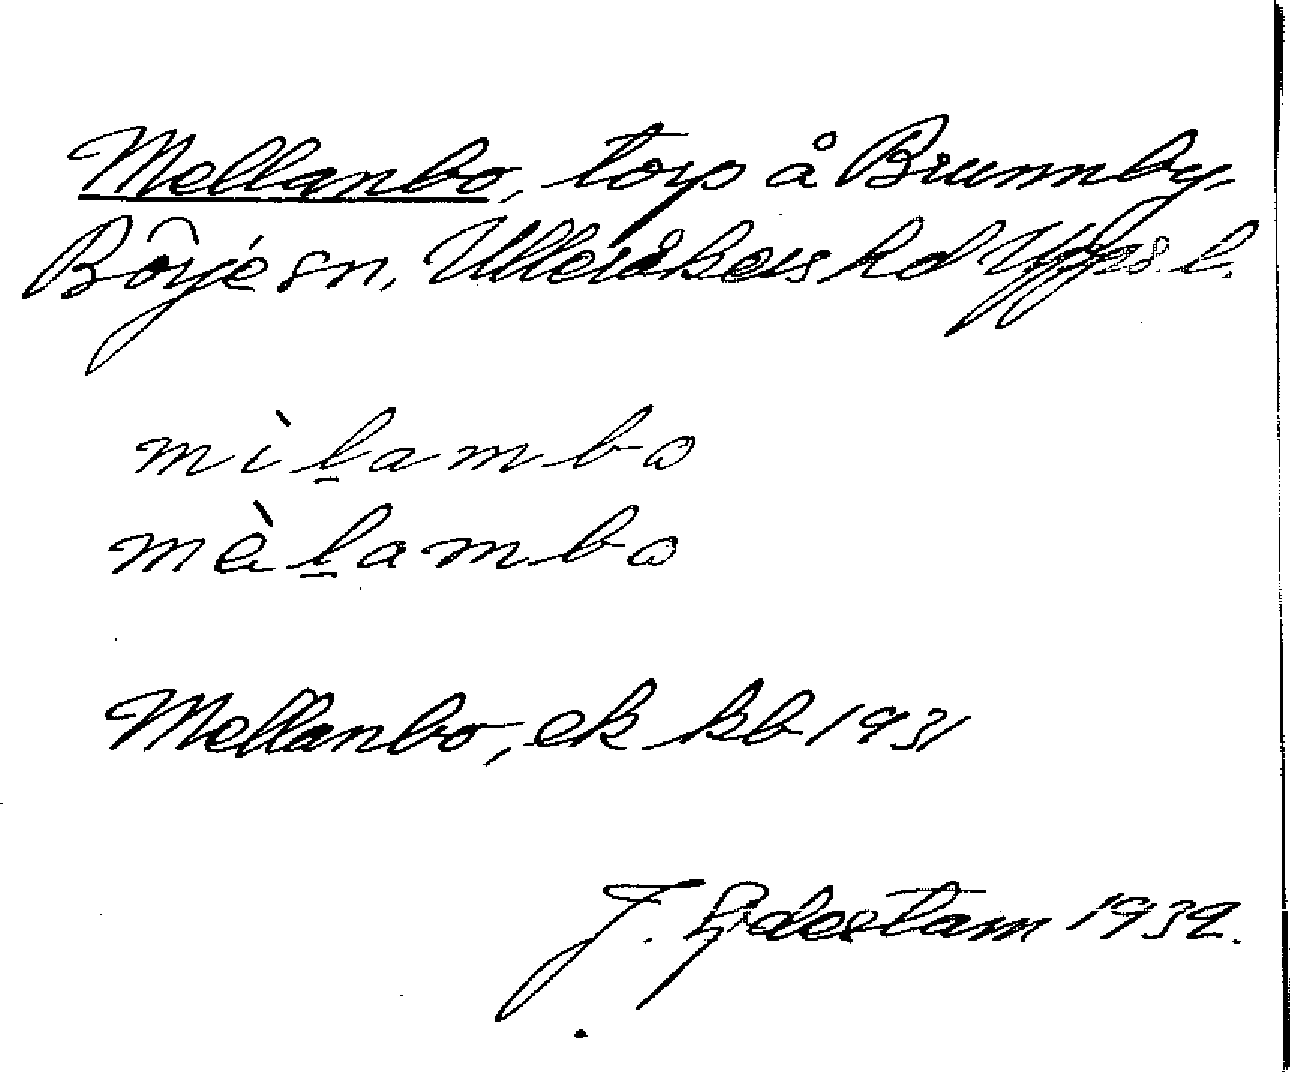 Mellanbo, torp å Brunnby,
Böje sn, Ulleråkers hd Upps. l.
mìl̠ambo
mèl̠ambo
Mellanbo, ek kb 1931
J. Lidestam 1932.